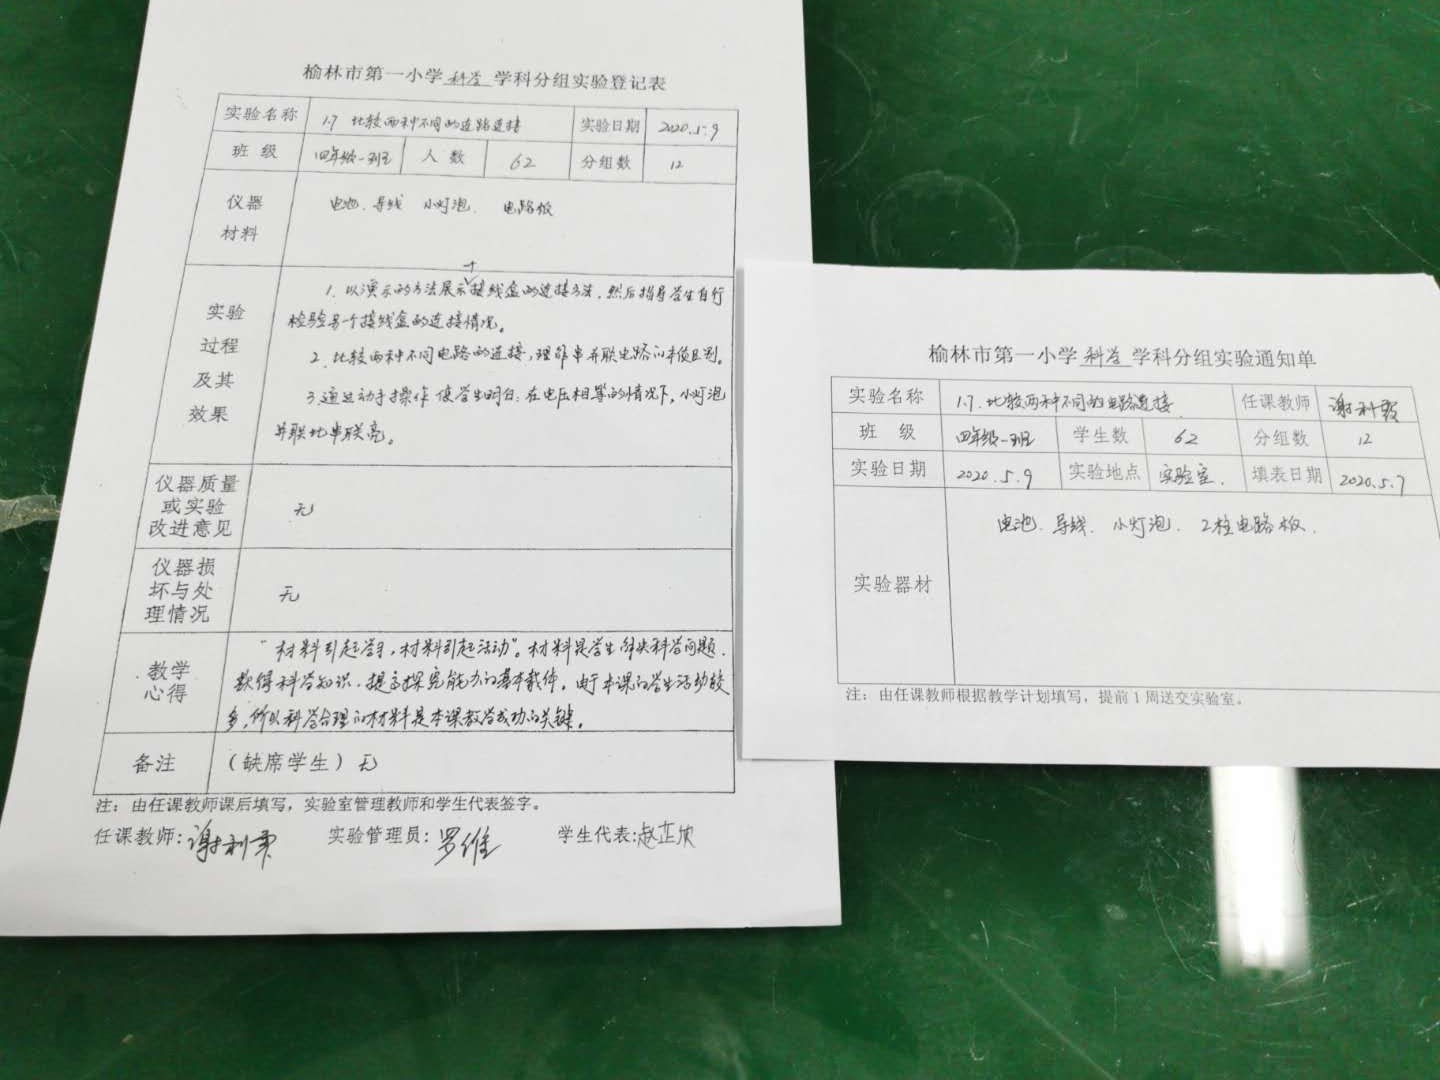 榆林市第一小学 科学 学科分组实验登记表
实验名称 1.7 比较两种不同的连路连接 实验日期 2020.5.9
班 级 四年级一班 人 数 62 分组数 12
仪器
材料
电池、导线 小灯泡、 电路板
实验
过程
及其
效果
1. 以演示的方法展示接线盒的连接方法,然后指导学生自行
检验另个接线盒的连接情况。
2. 比较两种不同电路的连接,理解串并联电路的本质区别。
3.通过动手操作使学生明白:在电压相等的情况下,小灯泡
并联比串联亮。
仪器质量
或实验
改进意见
无
仪器损
坏与处
理情况
无
教学
心得
“材料引起学习,材料引起活动”。材料是学生解决科学问题、
获得科学知识、提高探究能力的基本载体。由于本课的学生活动较
多,所以科学合理的材料是本课教学成功的关键。
备注 (缺席学生)无
注:由任课教师课后填写,实验室管理教师和学生代表签字。
任课教师:谢利 实验管理员:罗维 学生代表:赵芷欣
榆林市第一小学 科学 学科分组实验通知单
实验名称 1.7.比较两种不同的电路连接 任课教师 谢利
班 级 四年级一班 学生数 62 分组数 12
实验日期 2020.5.9 实验地点 实验室. 填表日期 2020.5.7
实验器材
电池、导线、小灯泡、2柱电路板.
注:由任课教师根据教学计划填写,提前1周送交实验室。